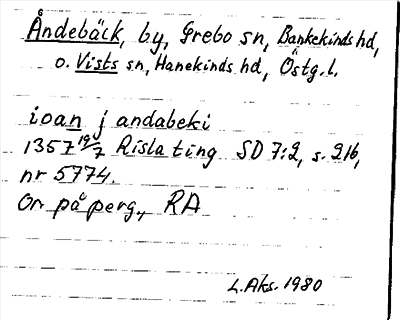 Åndebäck, by, Grebo sn, Bankekinds hd,
o. Vists sn, Hanekinds hd, Östg. l.
ioan j andabeki
1357 19/7 Risla ting SD 7:2, s. 216,
nr 5774.
Or på perg., RA
L. Aks. 1980